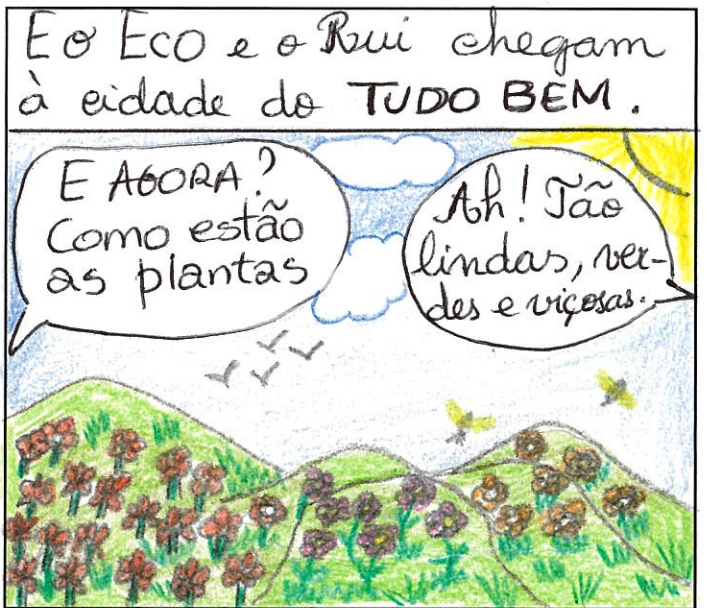 E o Eco e o Rui chegam
à cidade do TUDO BEM.
E AGORA?
Como estão
as plantas
Ah! Tão
lindas, ver-
des e viçosas.